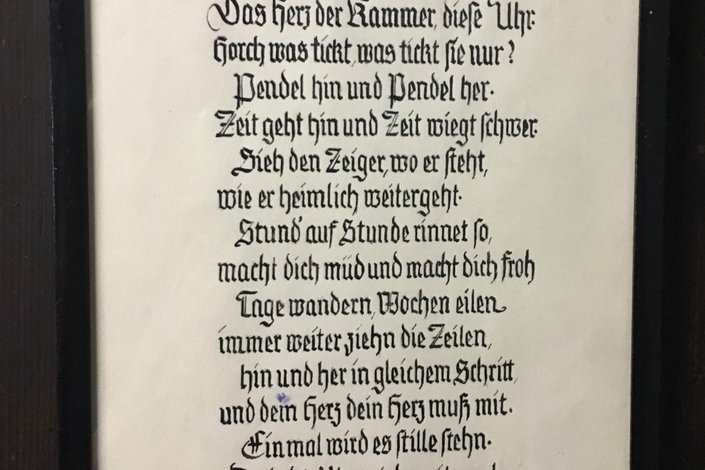 Das Herz der Kammer, diese Uhr.
Horch was tickt, was tickt sie nur?
Pendel hin und Pendel her.
Zeit geht hin und Zeit wiegt schwer.
Sieh den Zeiger, wo er steht,
wie er heimlich weitergeht.
Stund' auf Stunde rinnet so,
macht dich müd und macht dich froh
Tage wandern, Wochen eilen
immer weiter ziehn die Zeilen,
hin und her in gleichem Schritt,
und dein Herz dein Herz muß mit.
Einmal wird es stille stehn.